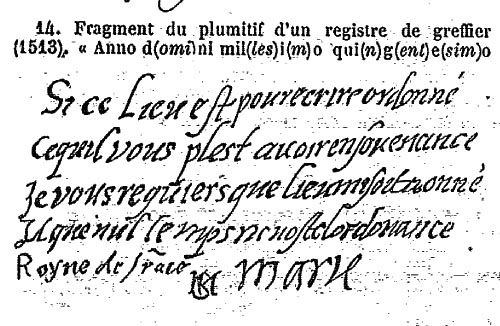 14. Fragment du plumitif d'un registre de greffier
(1513). « Anno d(omi)ni mil(les)i(m)o qui(n)g(ent)e(sim)o
Si ce Lieu est pour ecrire ordonné
Ce quil vous plest avoir en sovenance
Je vous requiers que lieu mi soet donné
Et que nul temps nen oste lordonance
Royne de france Marie